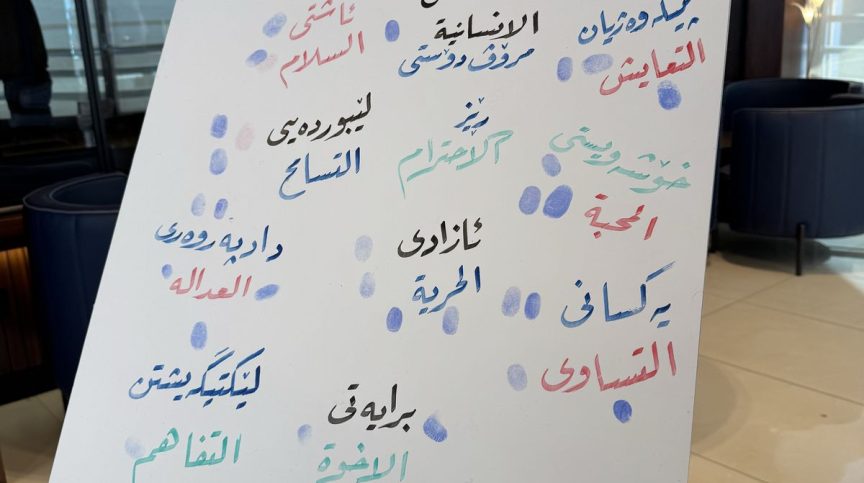 پێکەوەژیان
التعايش
الانسانية
مرۆڤ دۆستی
ئاشتی
السلام
خۆشەویستی
المحبة
ڕێز
الاحترام
لێبوردەیی
التسامح
یەکسانی
التساوی
ئازادی
الحرية
دادپەروەری
العداله
برایەتی
الاخوة
لێکتێگەیشتن
التفاهم